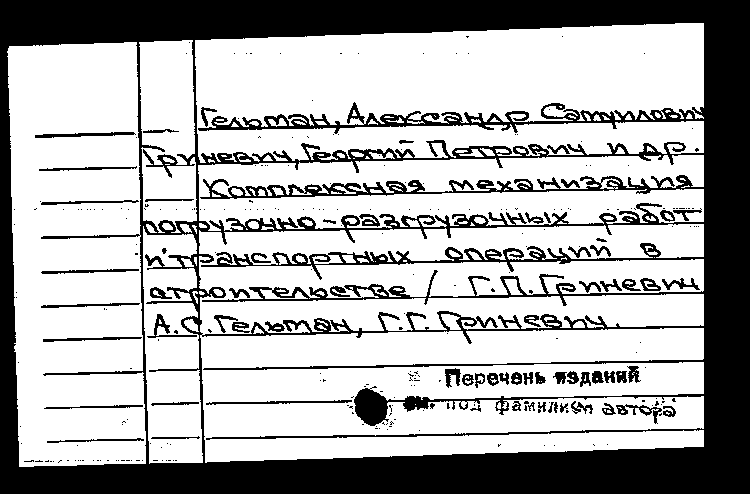 Гельман, Александр Самуилович
Гриневич, Георгий Петрович и др.
Комплексная механизация
погрузочно-разгрузочных работ
и транспортных операций в
строительстве / Г.П. Гриневич
А.С. Гельман, Г.Г. Гриневич.
Перечень изданий
см. под фамилией автора